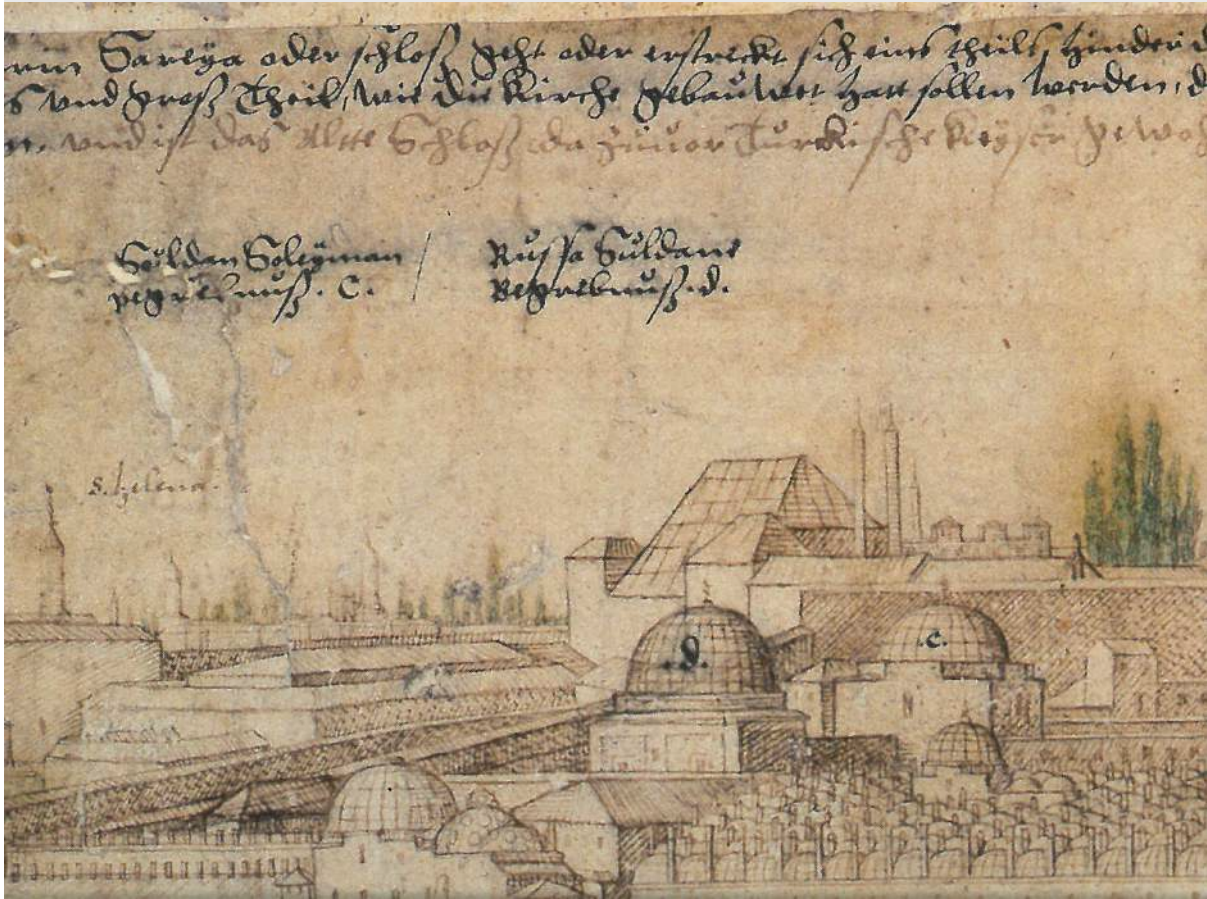 rin Sareya oder schloß geht oder erstreckt sich eins theils hinder d
s vnd groß Theil, wie die Kirche gebauwet hatt sollen werden, d
n. vnd ist das Altte Schloß da zuuor Turckische Keyser gewoh
Suldan Soleyman / Russa Suldane
begrebnuß . C. Begrebnuß . d.
S. helena.
.d. .C.